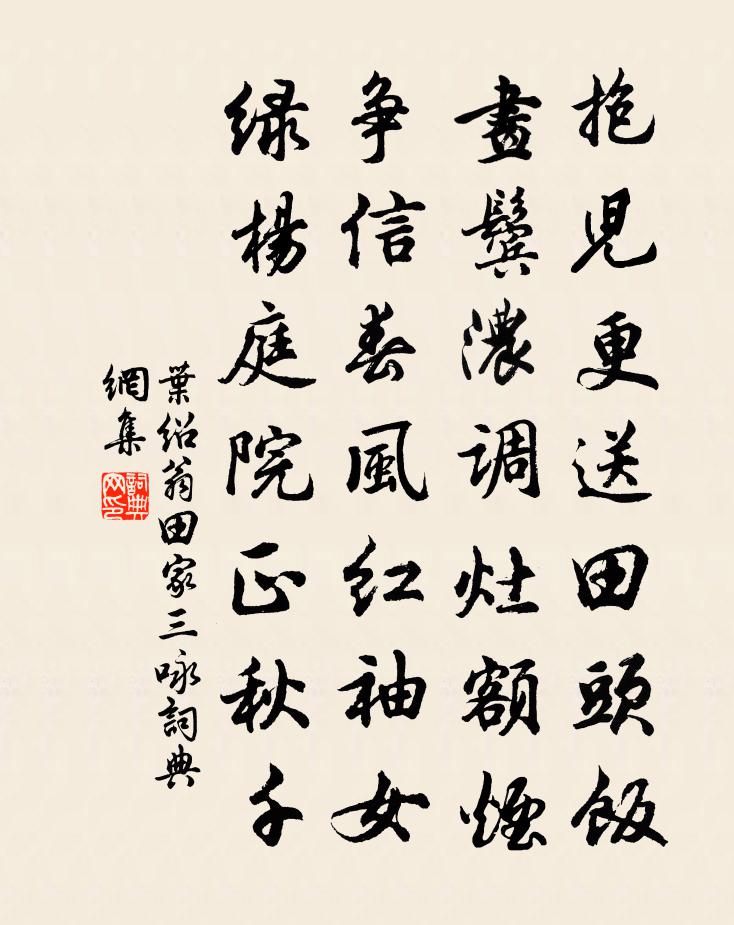 抱児更送田頭飯
畫鬢濃調灶額煙
争信春風紅袖女
緑楊庭院正秋千
葉紹翁田家三詠詞典
網集
詞典網印